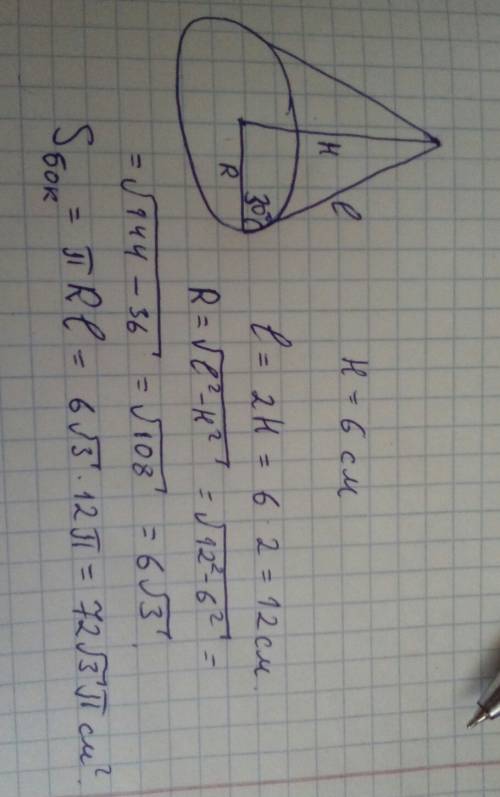 H
R
30°
l
H = 6 см
l = 2H = 6 · 2 = 12 см.
R = √l² - H² = √12² - 6² =
= √144 - 36 = √108 = 6√3
Sбок = πRl = 6√3 · 12π = 72√3π см².